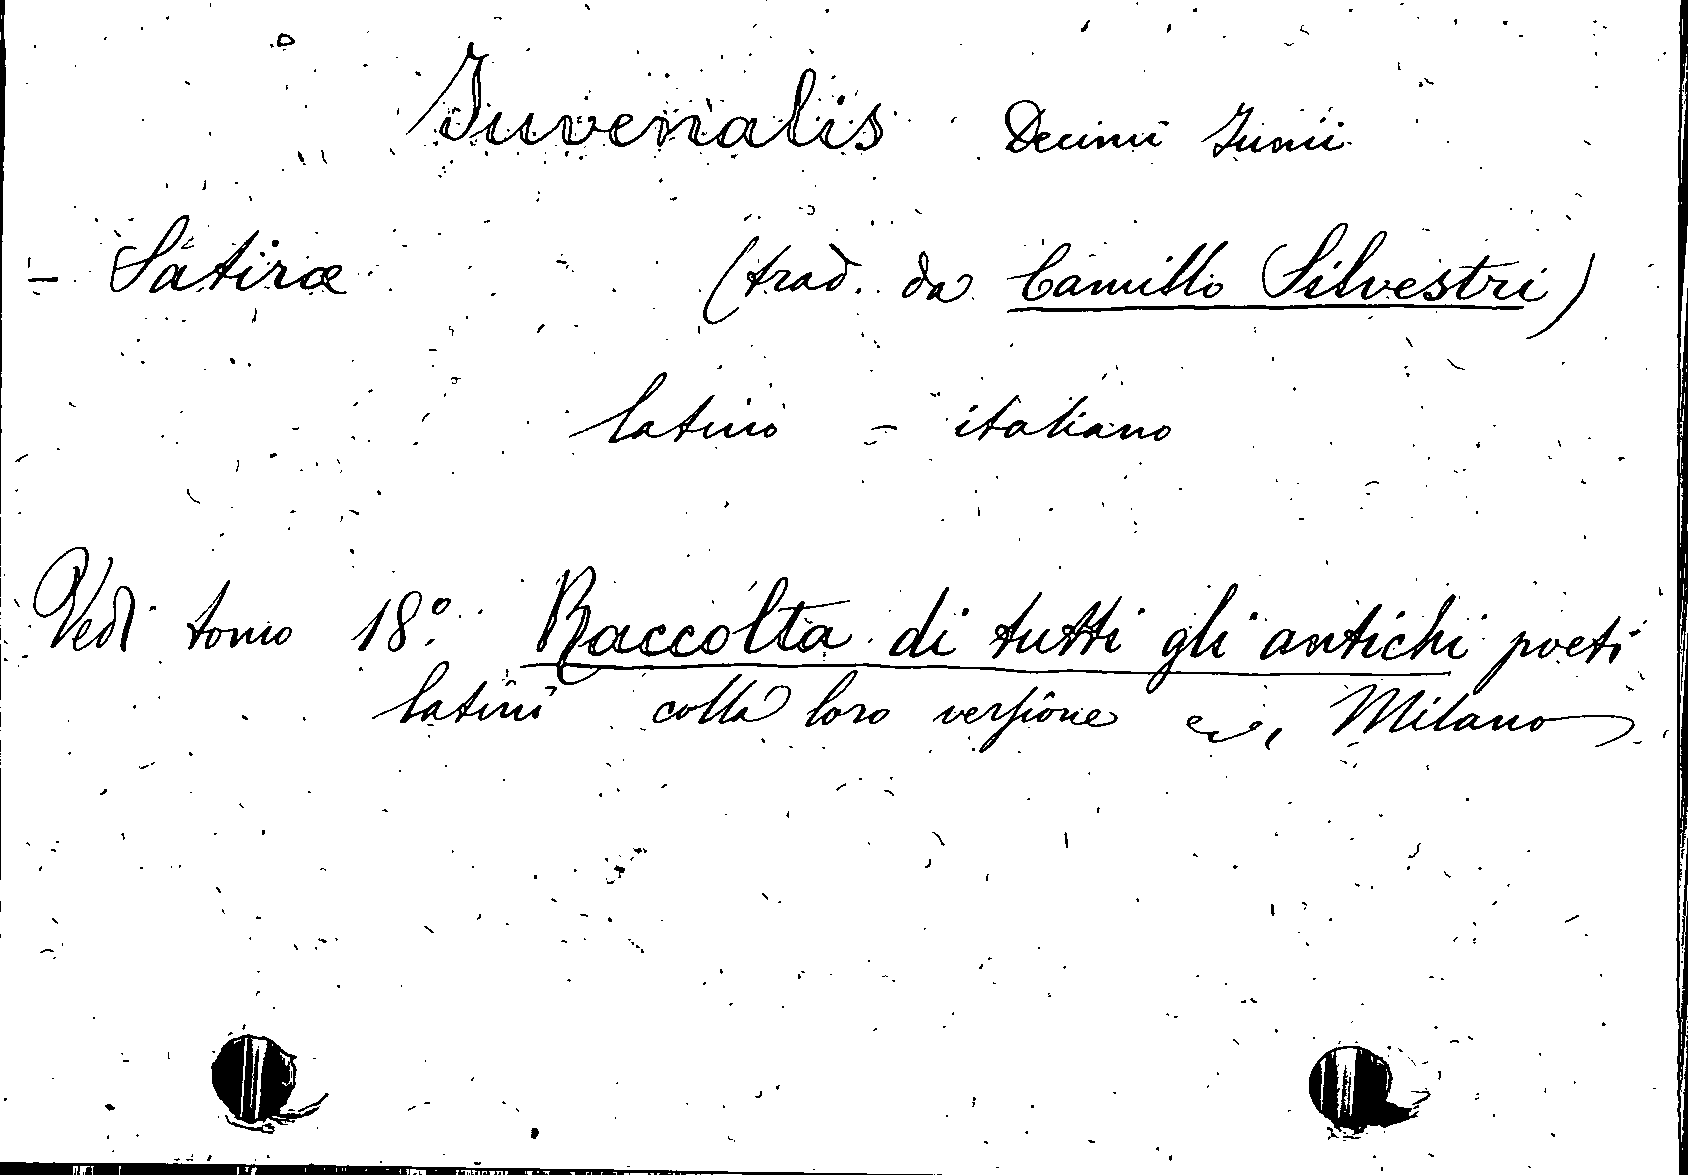 Juvenalis Decimi Junii
- Satiræ (trad. da Camillo Silvestri)
latino - italiano
Vedi tomo 18º Raccolta di tutti gli antichi poeti
latini colla loro versione , Milano